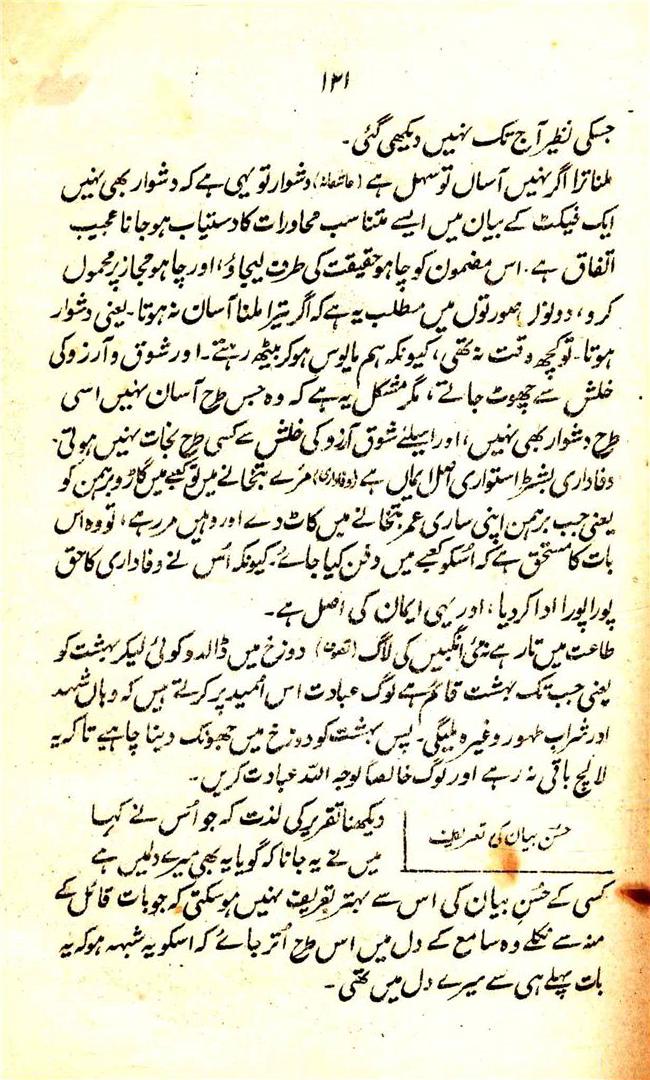 ۱۲۱
جسکی نظیر آج تک نہیں دیکھی گئی۔
ملنا ترا اگر نہیں آساں تو سہل ہے (عاشقانہ) دشوار تو یہی ہے کہ دشوار بھی نہیں
ایک فیکٹ کے بیان میں ایسے متناسب محاورات کا دستیاب ہو جانا عجیب
اتفاق ہے۔ اس مضمون کو چاہو حقیقت کی طرف لیجاؤ، اور چاہو مجاز پر محمول
کرو، دونوں صورتوں میں مطلب یہ ہے کہ اگر تیرا ملنا آسان نہ ہوتا۔ یعنی دشوار
ہوتا۔ تو کچھ دقت نہ تھی، کیونکہ ہم مایوس ہو کر بیٹھ رہتے۔ اور شوق و آرزو کی
خلش سے چھوٹ جاتے، مگر مشکل یہ ہے کہ وہ جس طرح آسان نہیں اسی
طرح دشوار بھی نہیں، اور اسیلئے شوق آرزو کی خلش سے کسی طرح نجات نہیں ہوتی۔
وفاداری بشرط استواری اصل ایماں ہے (وفاداری) مرے بتخانے میں تو کعبے میں گاڑو برہمن کو
یعنی جب برہمن اپنی ساری عمر بتخانے میں کاٹ دے اور وہیں مر رہے، تو وہ اس
بات کا مستحق ہے کہ اُسکو کعبے میں دفن کیا جائے۔ کیونکہ اُس نے وفاداری کا حق
پورا پورا ادا کر دیا، اور یہی ایمان کی اصل ہے۔
طاعت میں تا رہے نہ مئی انگبیں کی لاگ (تصوف) دوزخ میں ڈالدو کوئی لیکر بہشت کو
یعنی جب تک بہشت قائم ہے لوگ عبادت اس اُمید پر کرتے ہیں کہ وہاں شہد
اور شراب طہور وغیرہ ملیگی۔ پس بہشت کو دوزخ میں جھونک دینا چاہیے تاکہ یہ
لالچ باقی نہ رہے اور لوگ خالصاً لوجہ اللہ عبادت کریں۔
حسن بیان کی تعریف
دیکھنا تقریر کی لذت کہ جو اُس نے کہا
میں نے یہ جانا کہ گویا یہ بھی میرے دلمیں ہے
کسی کے حُسنِ بیان کی اس سے بہتر تعریف نہیں ہو سکتی کہ جو بات قائل کے
منہ سے نکلے وہ سامع کے دل میں اس طرح اُتر جائے کہ اسکو یہ شبہہ ہو کہ یہ
بات پہلے ہی سے میرے دل میں تھی۔